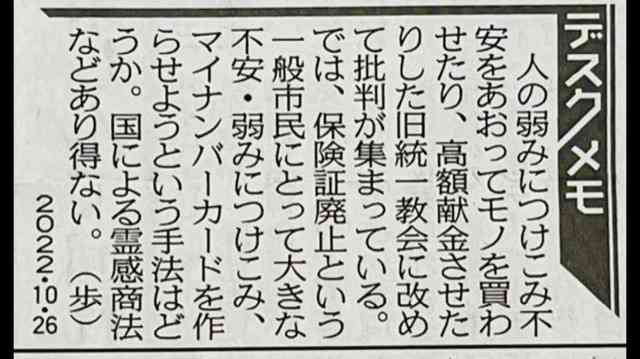 デスクメモ
人の弱みにつけこみ不
安をあおってモノを買わ
せたり、高額献金させた
りした旧統一教会に改め
て批判が集まっている。
では、保険証廃止という
一般市民にとって大きな
不安・弱みにつけこみ、
マイナンバーカードを作
らせようという手法はど
うか。国による霊感商法
などあり得ない。（歩）
2022・10・26